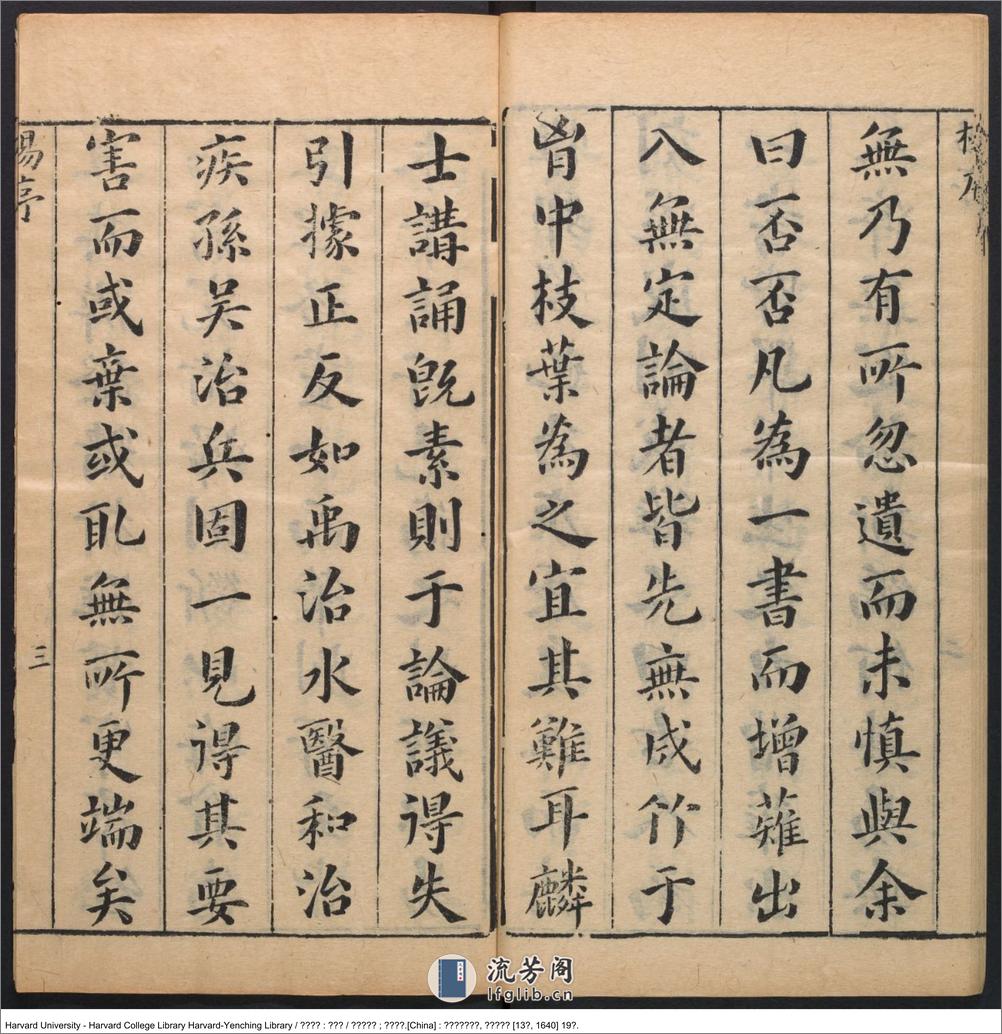 無乃有所忽遺而未慎與余
曰否否凡為一書而增薙出
入無定論者皆先無成竹于
胷中枝葉為之宜其難耳麟
士講誦旣素則于論議得失
引據正反如禹治水醫和治
疾孫吴治兵固一見得其要
害而或棄或耴無所更端矣
三
流芳阁
lfglib.cn
Harvard University - Harvard College Library Harvard-Yenching Library / ???? : ??? / ????? ; ????.[China] : ???????, ????? [13?, 1640] 19?.